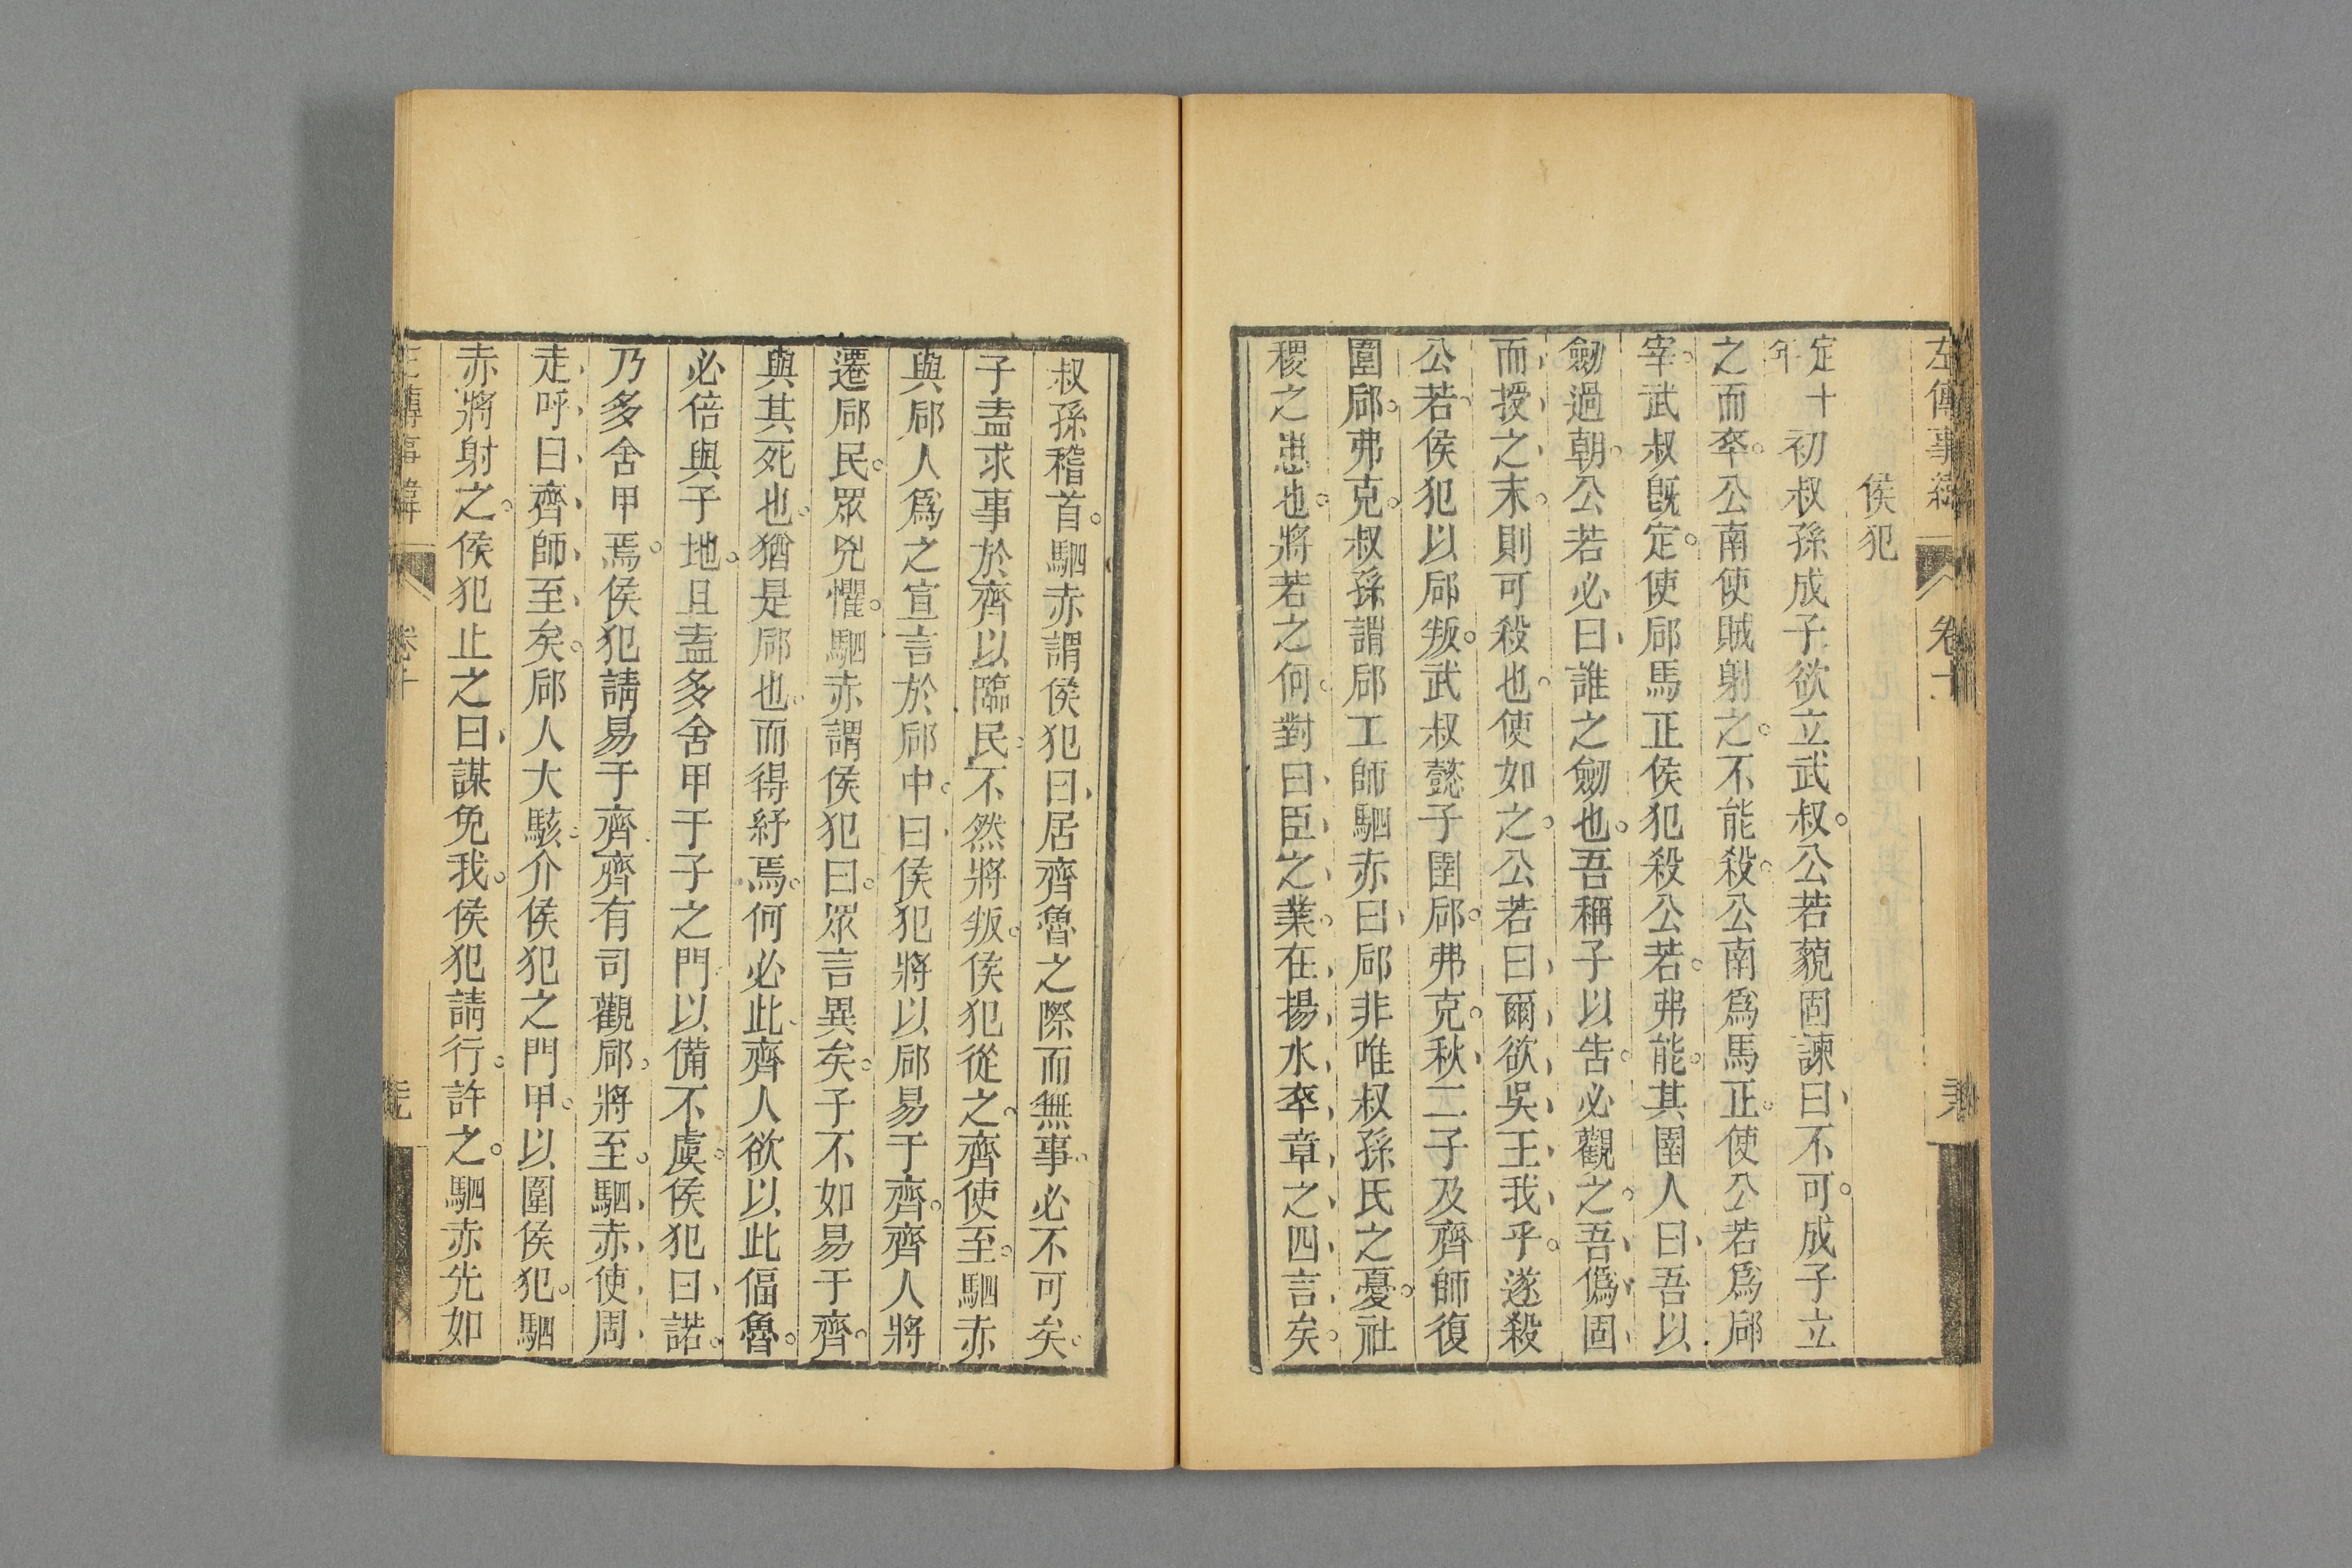 左傳事緯
卷十
侯犯
定十年
初叔孫成子欲立武叔。公若藐固諫曰、不可。成子立
之而卒。公南使賊射之。不能殺。公南爲馬正。使公若爲郈
宰。武叔旣定。使郈馬正侯犯殺公若。弗能。其圉人曰、吾以
劒過朝。公若必曰、誰之劒也。吾稱子以告。必觀之。吾僞固
而授之末。則可殺也。使如之。公若曰、爾欲吳王我乎。遂殺
公若。侯犯以郈叛。武叔懿子圍郈。弗克。秋、二子及齊師復
圍郈。弗克。叔孫謂郈工師駟赤曰、郈非唯叔孫氏之憂。社
稷之患也。將若之何。對曰、臣之業。在揚水卒章之四言矣。
叔孫稽首。駟赤謂侯犯曰、居齊魯之際而無事。必不可矣。
子盍求事於齊以臨民。不然將叛。侯犯從之。齊使至。駟赤
與郈人爲之宣言於郈中。曰、侯犯將以郈易于齊。齊人將
遷郈民。眾兇懼。駟赤謂侯犯曰。眾言異矣。子不如易于齊。
與其死也。猶是郈也。而得紓焉。何必此、齊人欲以此偪魯。
必倍與子地。且盍多舍甲于子之門、以備不虞。侯犯曰、諾。
乃多舍甲焉。侯犯請易于齊。齊有司觀郈。將至。駟赤使周
走呼曰、齊師至矣。郈人大駭。介侯犯之門甲。以圍侯犯。駟
赤將射之。侯犯止之。曰、謀免我。侯犯請行。許之。駟赤先如
左傳事緯
卷十